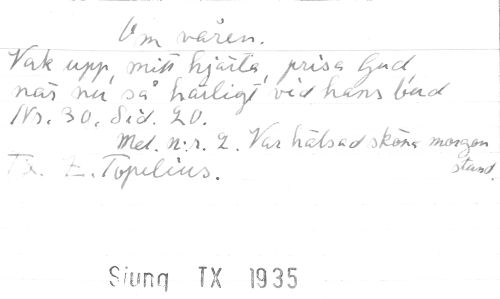 Om våren.
Vak upp, mitt hjärta, prisa Gud
när nu så härligt vid hans bud
Nr. 30. Sid. 20.
Mel. n:r. 2. Var hälsad sköna morgon
stund.
Tx. Z. Topelius.
Sjung TX 1935